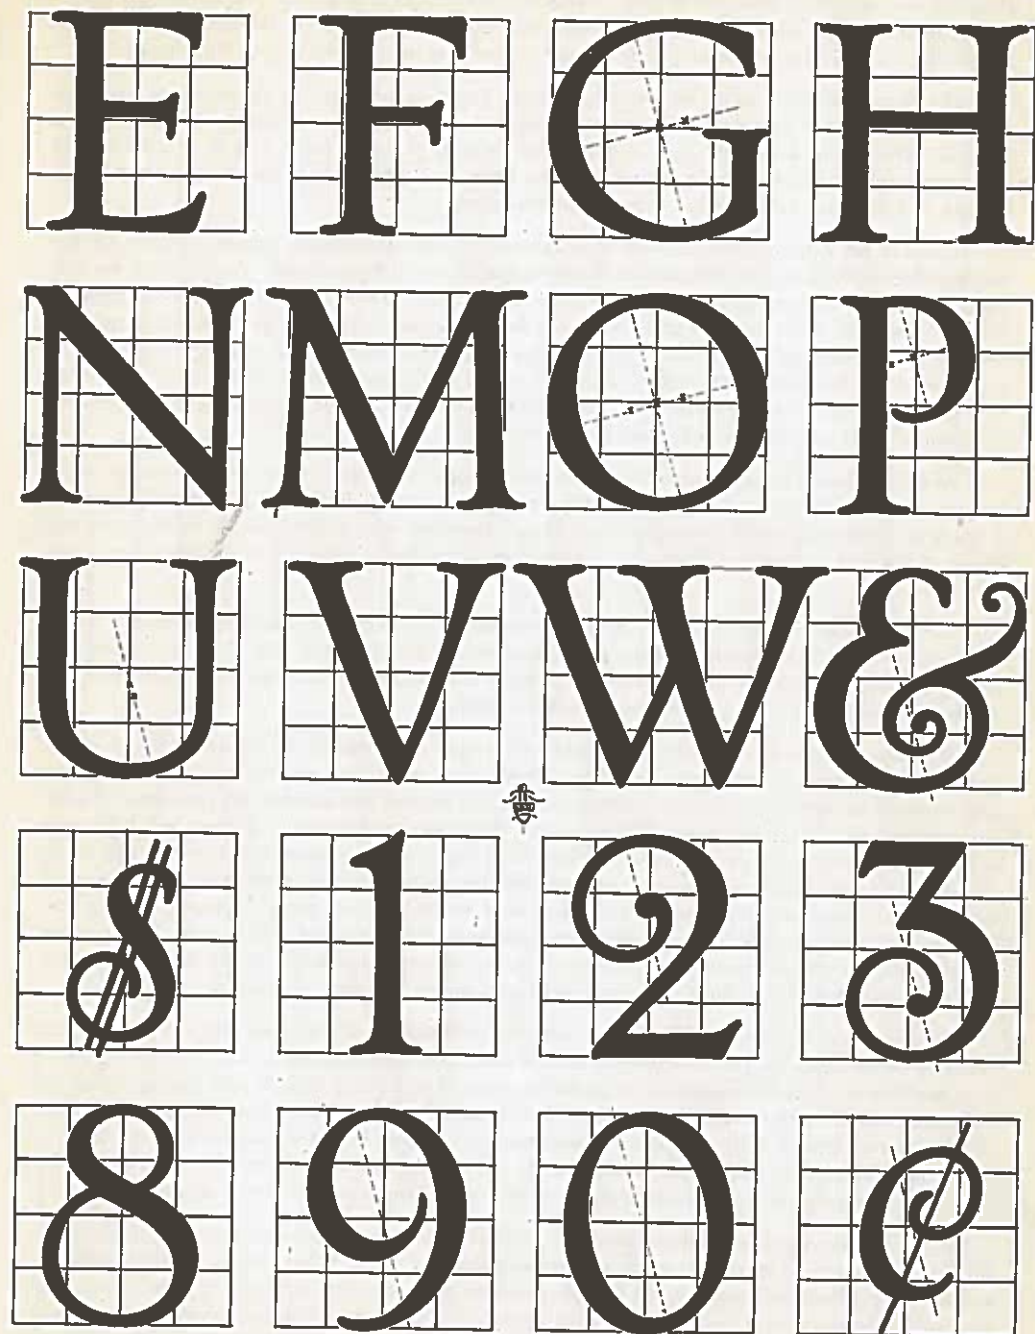 E F G H
N M O P
U V W &
$ 1 2 3
8 9 0 ¢